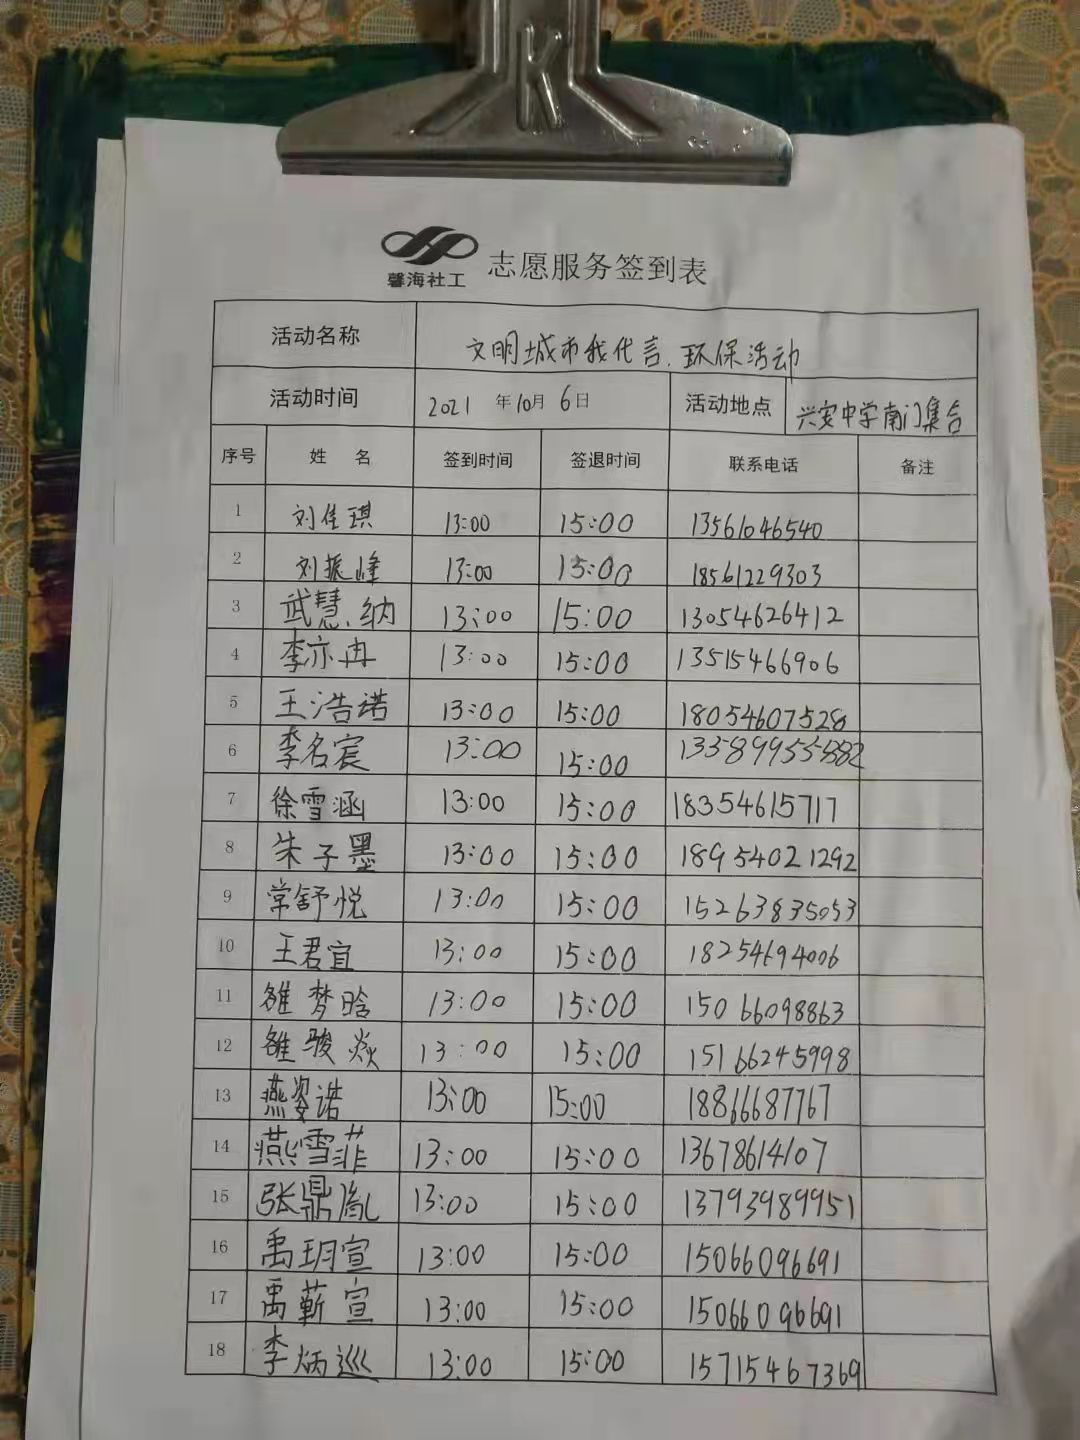 K
馨海社工 志愿服务签到表
活动名称 文明城市我代言.环保活动
活动时间 2021 年10月 6日 活动地点 兴安中学南门集合
序号 姓 名 签到时间 签退时间 联系电话 备注
1 刘佳琪 13:00 15:00 13561046540
2 刘振峰 13:00 15:00 18561229303
3 武慧纳 13:00 15:00 13054626412
4 李亦冉 13:00 15:00 13515466906
5 王浩诺 13:00 15:00 18054607528
6 李名宸 13:00 15:00
7 徐雪涵 13:00 15:00 18354615717
8 朱子墨 13:00 15:00 18954021292
9 常舒悦 13:00 15:00 15263835053
10 王君宜 13:00 15:00 18254694006
11 雒梦晗 13:00 15:00 15066098863
12 雒骏焱 13:00 15:00 15166245998
13 燕姿诺 13:00 15:00 18866687767
14 燕雪菲 13:00 15:00 13678614107
15 张鼎胤 13:00 15:00 13793989951
16 禹玥宣 13:00 15:00 15066096691
17 禹蕲宣 13:00 15:00 15066096691
18 李炳巡 13:00 15:00 15715467369